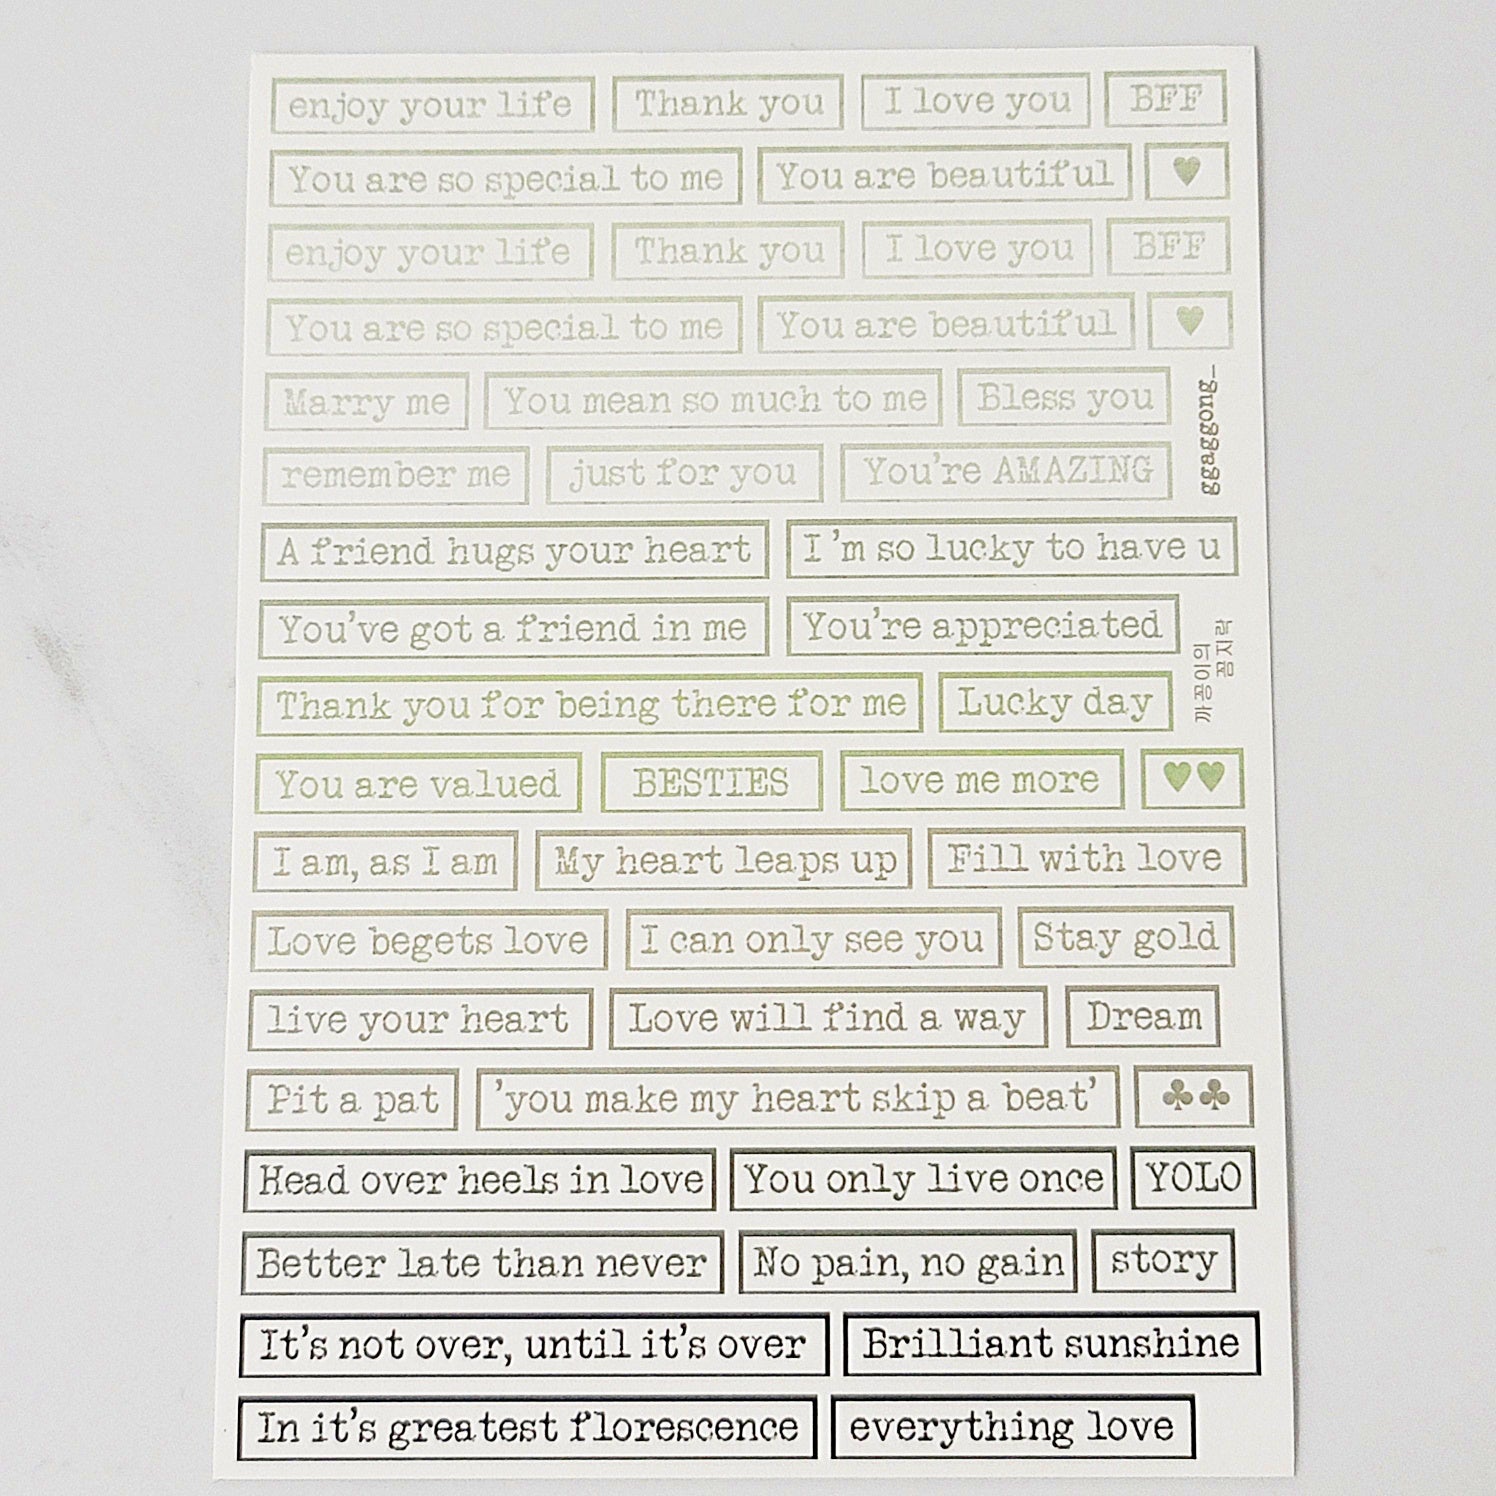 enjoy your life Thank you I love you BFF
You are so special to me You are beautiful ♥
enjoy your life Thank you I love you BFF
You are so special to me You are beautiful ♥
Marry me You mean so much to me Bless you
remember me just for you You're AMAZING
ggaggong_
A friend hugs your heart I'm so lucky to have u
You've got a friend in me You're appreciated
까공이의
공지락
Thank you for being there for me Lucky day
You are valued BESTIES love me more ♥♥
I am, as I am My heart leaps up Fill with love
Love begets love I can only see you Stay gold
live your heart Love will find a way Dream
Pit a pat 'you make my heart skip a beat' ♣♣
Head over heels in love You only live once YOLO
Better late than never No pain, no gain story
It's not over, until it's over Brilliant sunshine
In it's greatest florescence everything love